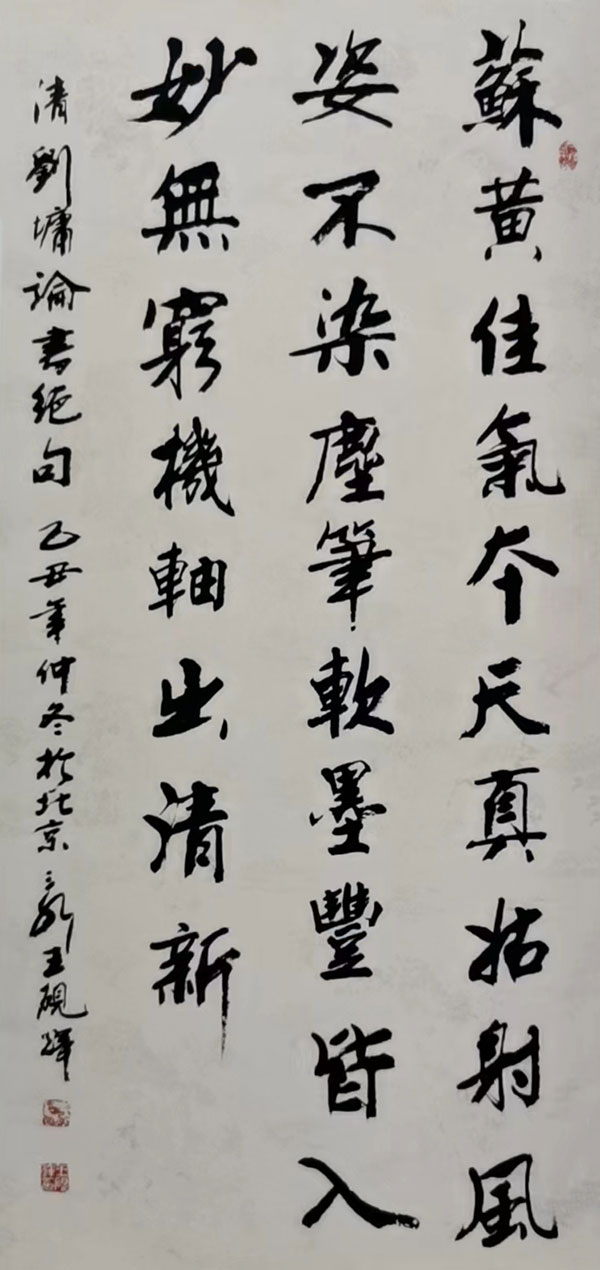 蘇黄佳氣本天真姑射風
姿不染塵筆軟墨豐皆入
妙無窮機軸出清新
清劉墉論書絶句 乙丑年仲冬於北京 王硯輝